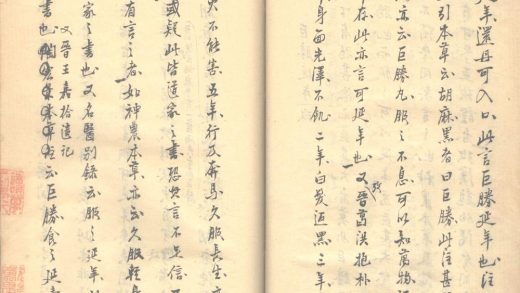 延年還丹可入口此言巨勝延年也注
引本草云胡麻黑者曰巨勝此注甚
亦云巨勝丸服之不息可以知萬物
存此亦言可延年也又晉葛洪抱朴
身面光澤不飢二年白髮返黑三年
火不能害五年行及奔馬久服長生
或疑此皆道家之書恐其言不足信
有言之者如神農本草亦云久服輕身
家之書也又名醫別錄云服之延年
又晉王嘉拾遺記
書也陶弘景本草注云巨勝食之延年